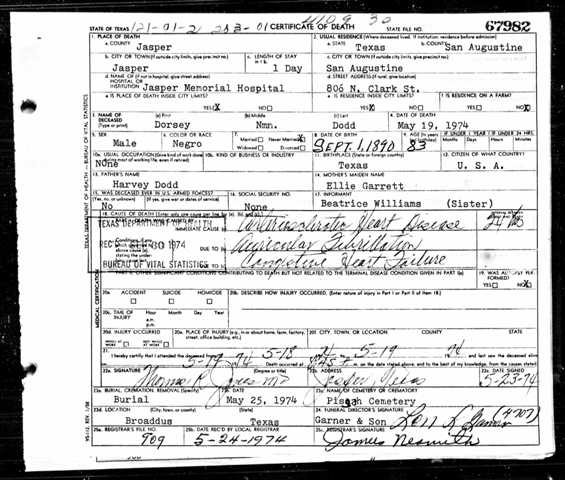 STATE OF TEXAS CERTIFICATE OF DEATH STATE FILE NO. 67982
1. PLACE OF DEATH 2. USUAL RESIDENCE (Where deceased lived. If institution: residence before admission)
a. COUNTY Jasper a. STATE Texas b. COUNTY San Augustine
b. CITY OR TOWN (If outside city limits, give precinct no.) c. LENGTH OF STAY c. CITY OR TOWN (If outside city limits, give precinct no.)
Jasper 1 Day San Augustine
d. NAME OF (If not in hospital, give street address) d. STREET ADDRESS (If rural, give location)
HOSPITAL OR INSTITUTION Jasper Memorial Hospital 806 N. Clark St.
e. IS PLACE OF DEATH INSIDE CITY LIMITS? e. IS RESIDENCE INSIDE CITY LIMITS? f. IS RESIDENCE ON A FARM?
YES X NO YES X NO YES NO X
3. NAME OF DECEASED (a) First (b) Middle (c) Last 4. DATE OF DEATH
(Type or print) Dorsey Nmn. Dodd May 19, 1974
5. SEX 6. COLOR OR RACE 7. Married Never Married X Widowed Divorced 8. DATE OF BIRTH 9. AGE IF UNDER 1 YEAR IF UNDER 24 HRS.
Male Negro SEPT. 1, 1890 83 Months Days Hours Min.
10a. USUAL OCCUPATION (Give kind of work done during most of working life, even if retired) 10b. KIND OF BUSINESS OR INDUSTRY 11. BIRTHPLACE (State or foreign country) 12. CITIZEN OF WHAT COUNTRY?
None Texas U. S. A.
13. FATHER'S NAME 14. MOTHER'S MAIDEN NAME
Harvey Dodd Ellie Garrett
15. WAS DECEASED EVER IN U.S. ARMED FORCES? 16. SOCIAL SECURITY NO. 17. INFORMANT
No None Beatrice Williams (Sister)
18. CAUSE OF DEATH
TEXAS DEPARTMENT OF HEALTH IMMEDIATE CAUSE (a) Arteriosclerotic Heart Disease
REC'D 30 1974 DUE TO (b) Auricular Fibrillation
BUREAU OF VITAL STATISTICS DUE TO (c) Congestive Heart Failure
PART II. OTHER SIGNIFICANT CONDITIONS CONTRIBUTING TO DEATH BUT NOT RELATED TO THE TERMINAL DISEASE CONDITION GIVEN IN PART I(a) 19. WAS AUTOPSY PERFORMED?
YES NO X
20a. ACCIDENT SUICIDE HOMICIDE 20b. DESCRIBE HOW INJURY OCCURRED. (Enter nature of injury in Part I or Part II of item 18.)
20c. TIME OF INJURY Hour Month Day Year
a.m.
p.m.
20d. INJURY OCCURRED 20e. PLACE OF INJURY (e.g. in or about home, farm, factory, street, office building, etc.) 20f. CITY, TOWN, OR LOCATION COUNTY STATE
21. I hereby certify that I attended the deceased from 5-18 74 5-19 74 and last saw the deceased alive
22a. SIGNATURE (Degree or title) 22b. ADDRESS 22c. DATE SIGNED
Thomas R. Jones MD Jasper, Texas 5-23-74
23a. BURIAL, CREMATION, REMOVAL (Specify) 23b. DATE 23c. NAME OF CEMETERY OR CREMATORY
Burial May 25, 1974 Pisgah Cemetery
23d. LOCATION (City, town, or county) (State) 24. FUNERAL DIRECTOR'S SIGNATURE
Broaddus Texas Garner & Son
25a. REGISTRAR'S FILE NO. 25b. DATE REC'D BY LOCAL REGISTRAR 25c. REGISTRAR'S SIGNATURE
909 5-24-1974 James Nesmith
TEXAS DEPARTMENT OF HEALTH - BUREAU OF VITAL STATISTICS
MEDICAL CERTIFICATION